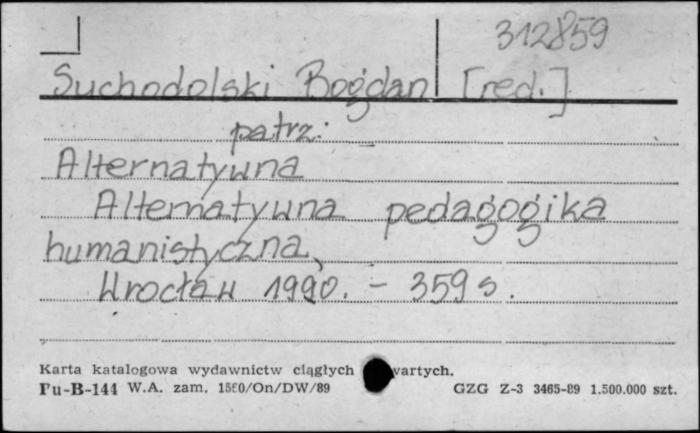 312859
Suchodolski Bogdan [red.]
patrz:
Alternatywna
Alternatywna pedagogika
humanistyczna,
Wrocław 1990. – 359 s.
Karta katalogowa wydawnictw ciągłych wartych.
Pu-B-144 W.A. zam. 1560/On/DW/89 GZG Z-3 3465-89 1.500.000 szt.